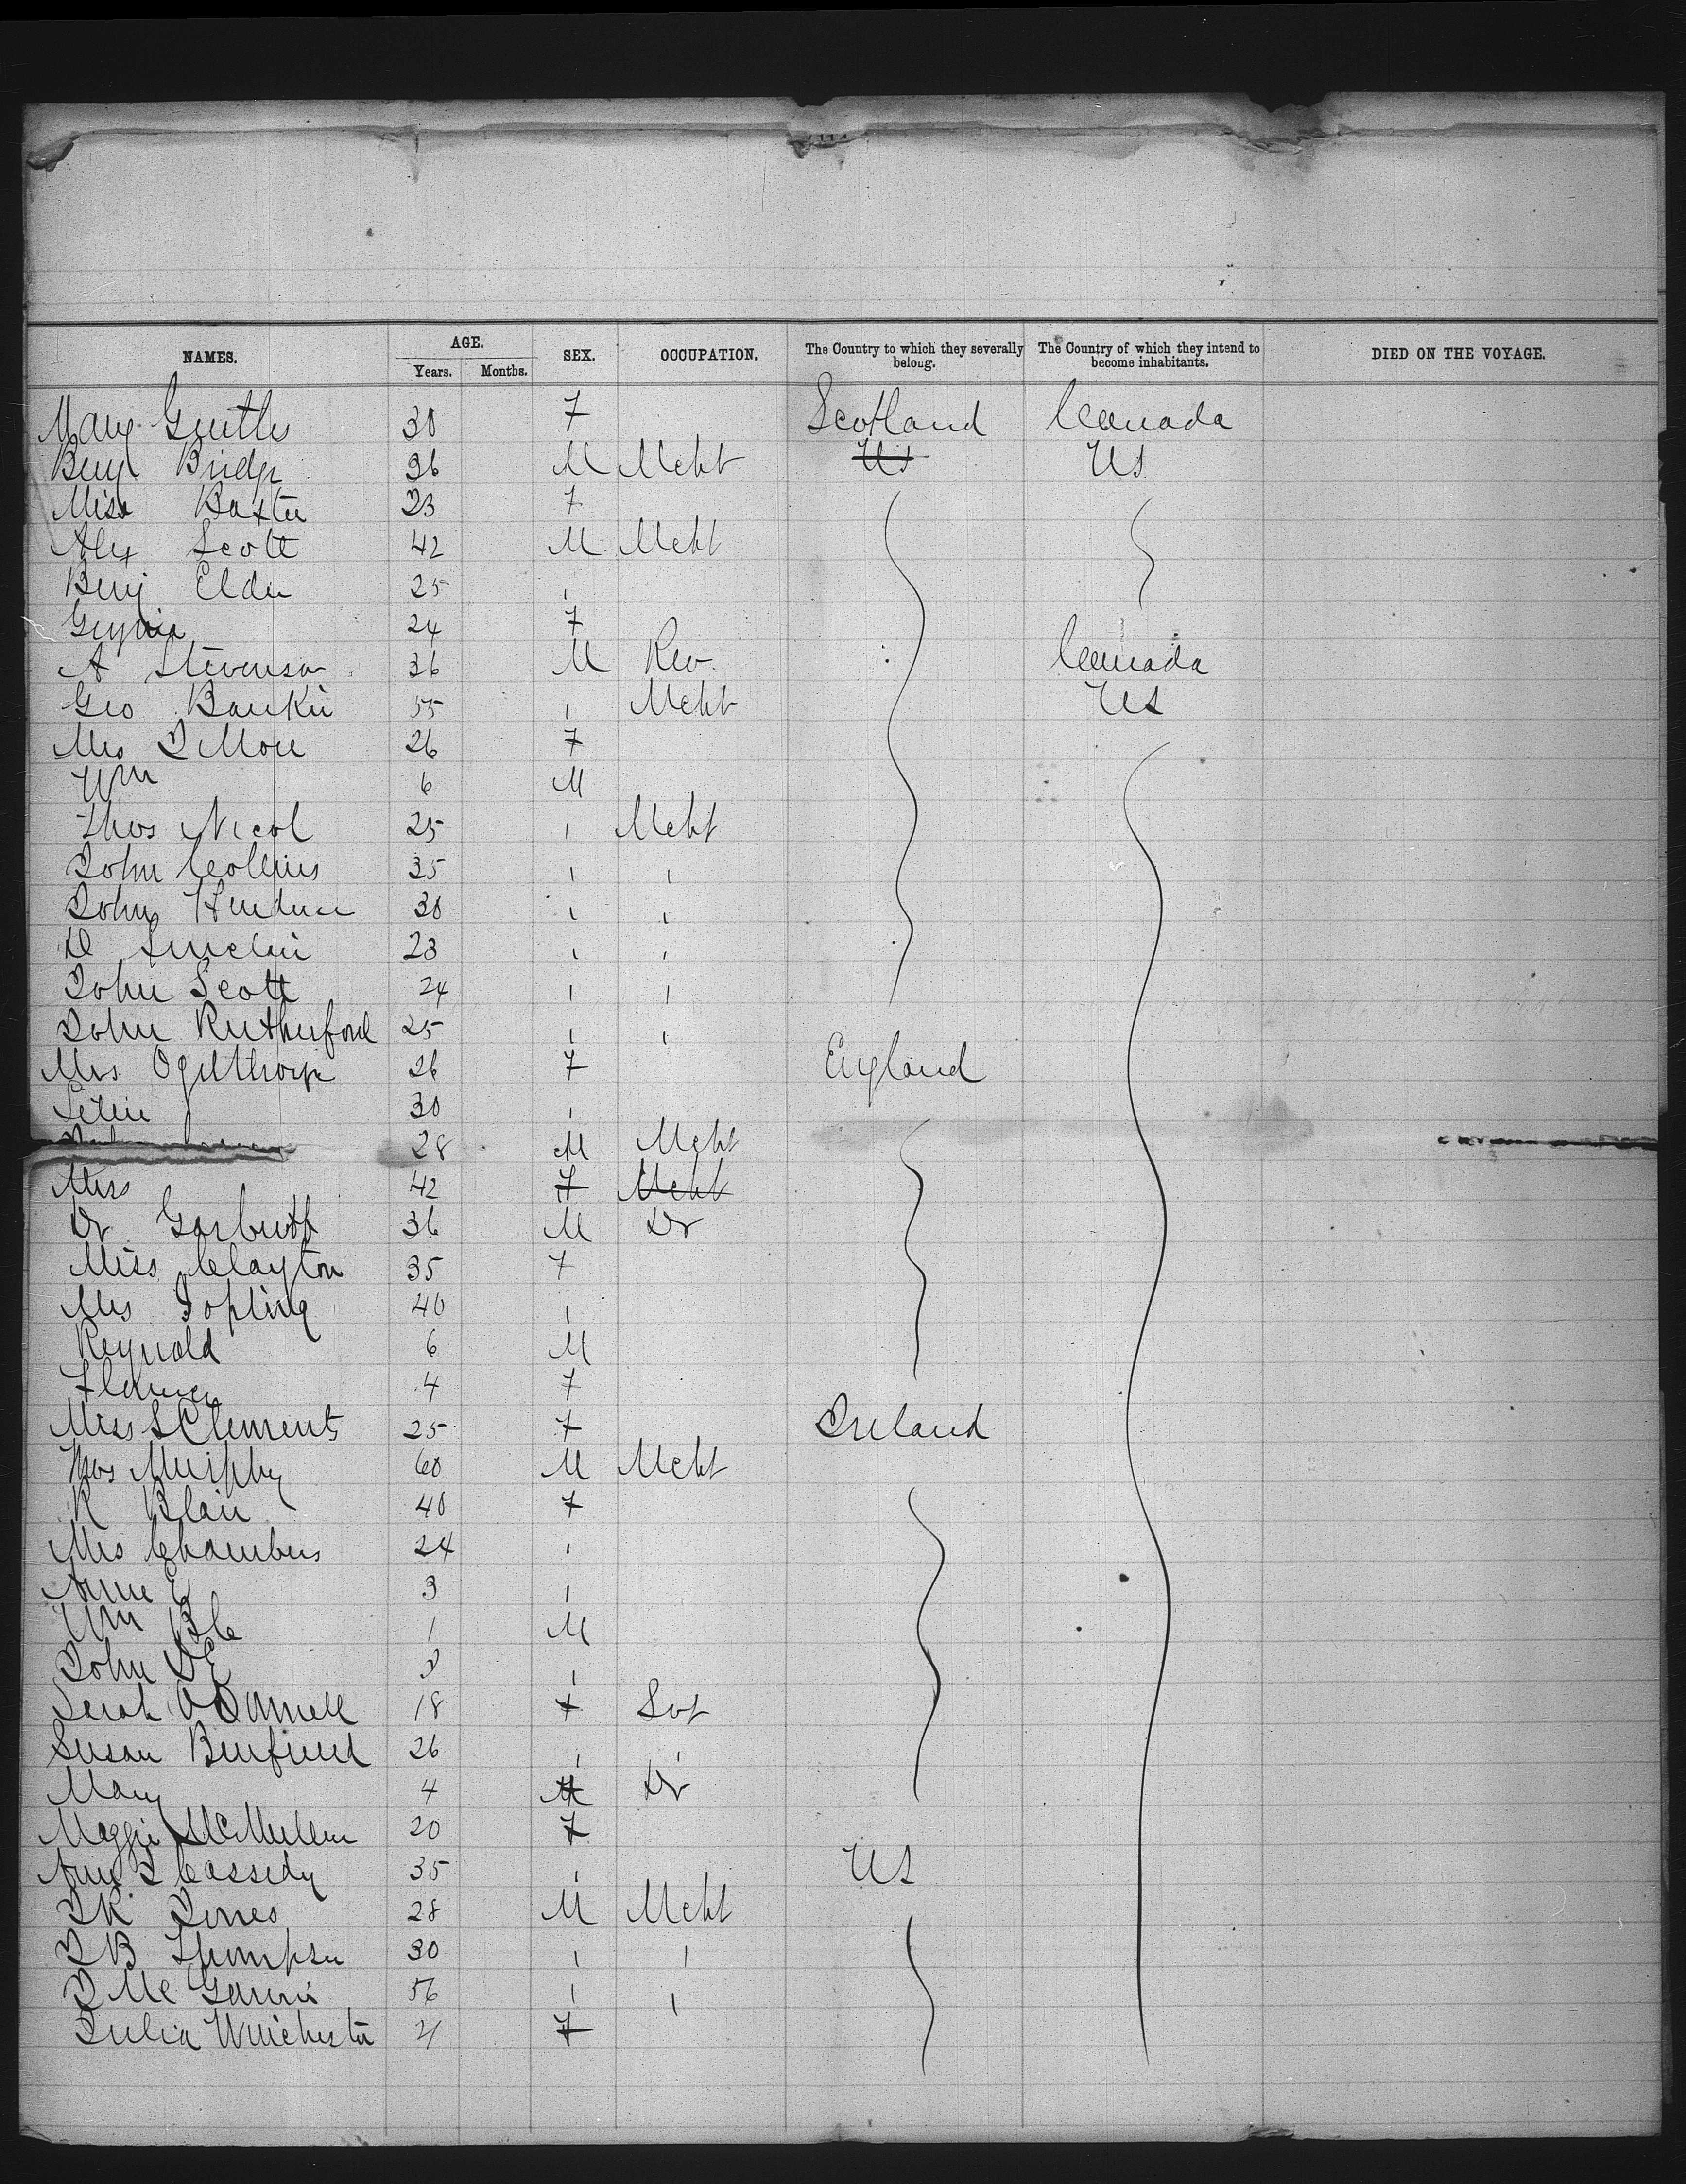 NAMES. AGE. SEX. OCCUPATION. The Country to which they severally belong. The Country of which they intend to become inhabitants. DIED ON THE VOYAGE.
Years. Months.
Mary 30 F Scotland Canada
Benj Bridge 36 M Mcht Us US
Miss Baxter 23 F
Alex Scott 42 M Mcht
Benj Elder 25 "
24 F
A Stevenson 36 M Rev. Canada
Geo 55 " Mcht US
Mrs J More 26 F
Wm 6 M
Thos Nicol 25 " Mcht
John Collins 35 " "
John 30 " "
D Sinclair 23 " "
John Scott 24 " "
John Rutherford 25 " "
Mrs Ogilthorpe 26 F England
30 "
28 M Mcht
Mrs 42 F Mcht
Dr Garbutt 36 M Dr
Miss Clayton 35 F
Mrs Jopling 40 "
Reynold 6 M
4 F
Miss S Clements 25 F Ireland
Thos Murphy 60 M Mcht
R Blair 40 F
Mrs Chambers 24 "
Annie E 3 "
Wm 1 M
John "
Sarah O'Donnell 18 F Svt
Susan 26 " "
Mary 4 Dr
Maggie McMullen 20 F
Ann J Cassidy 35 " US
J K Jones 28 M Mcht
J B Thompson 30 " "
J Mc 56 " "
Julia Winchester 21 F